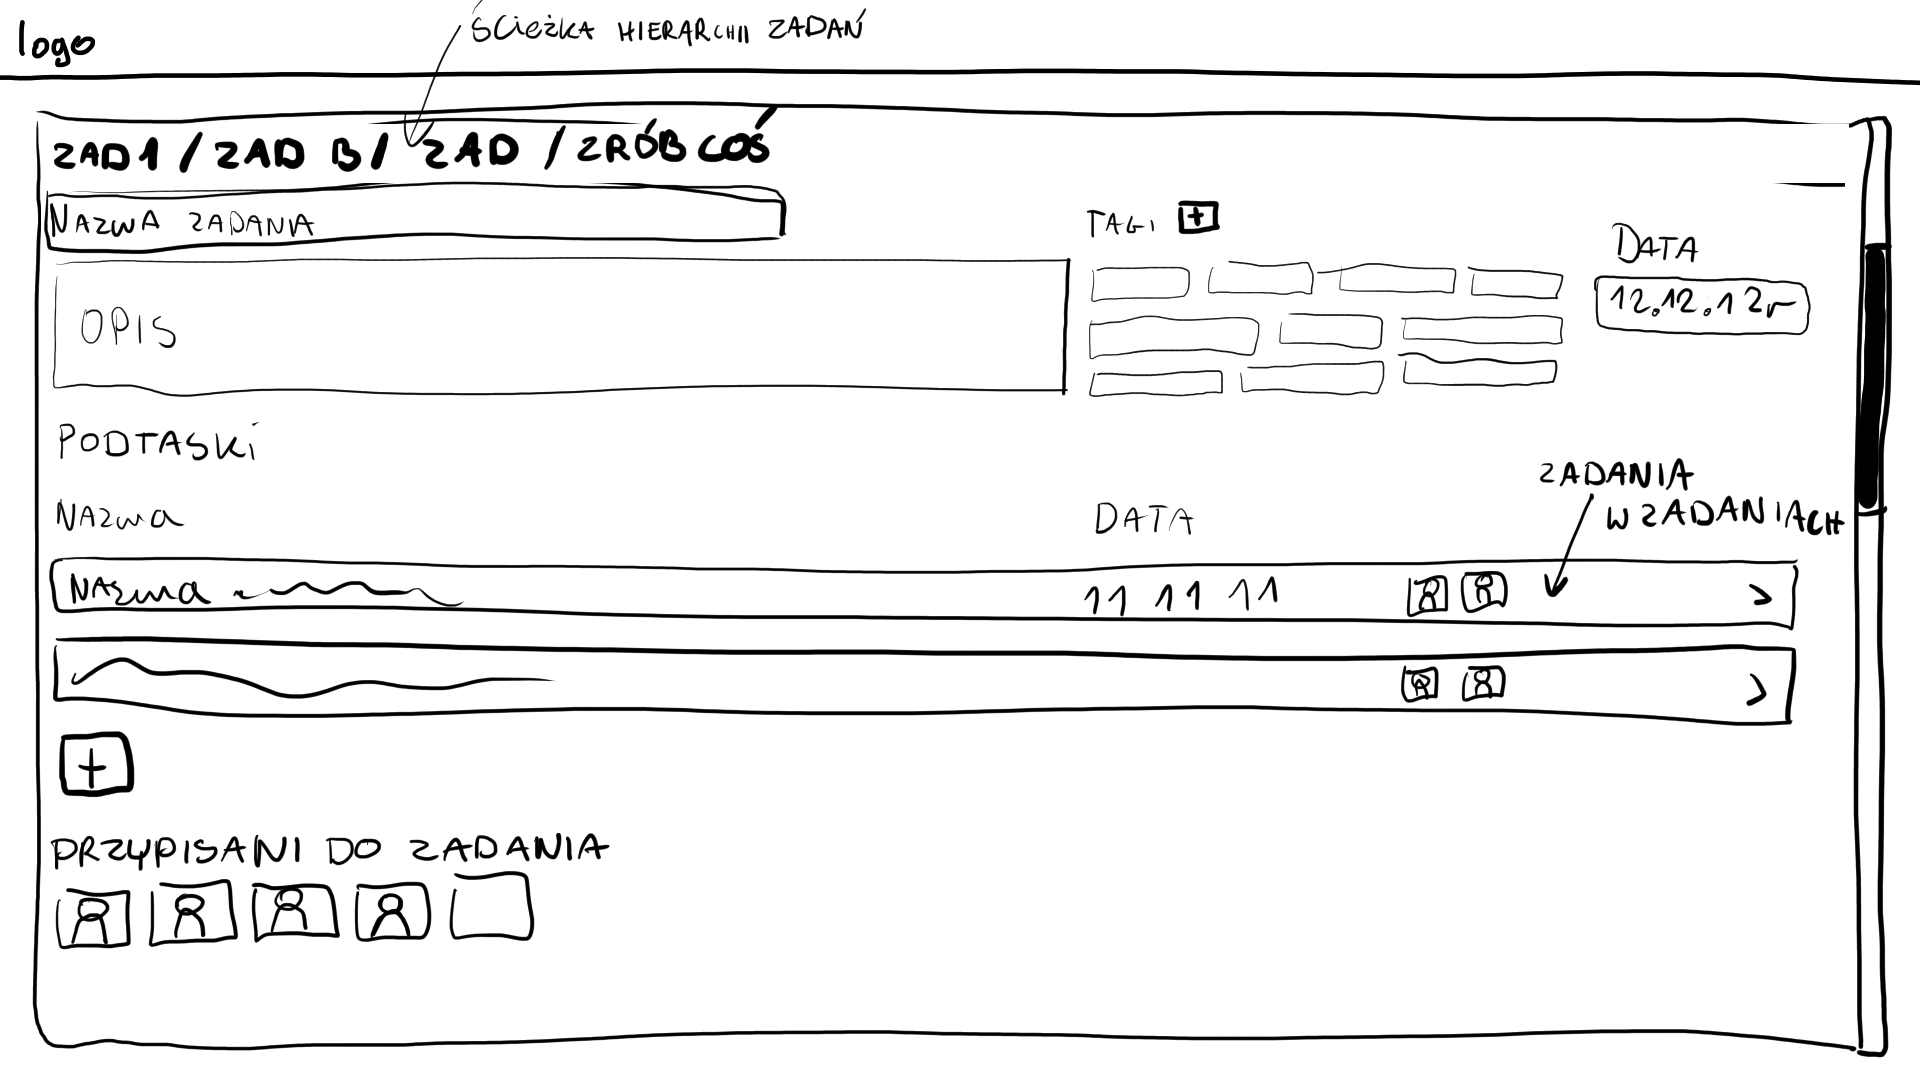 logo
ŚCIEŻKA HIERARCHII ZADAŃ
ZAD1 / ZAD B / ZAD / ZRÓB COŚ
NAZWA ZADANIA
TAGI +
DATA
12.12.12r
OPIS
PODTASKI
ZADANIA
W ZADANIACH
NAZWA
DATA
NAZWA
11 11 11 >
>
+
PRZYPISANI DO ZADANIA